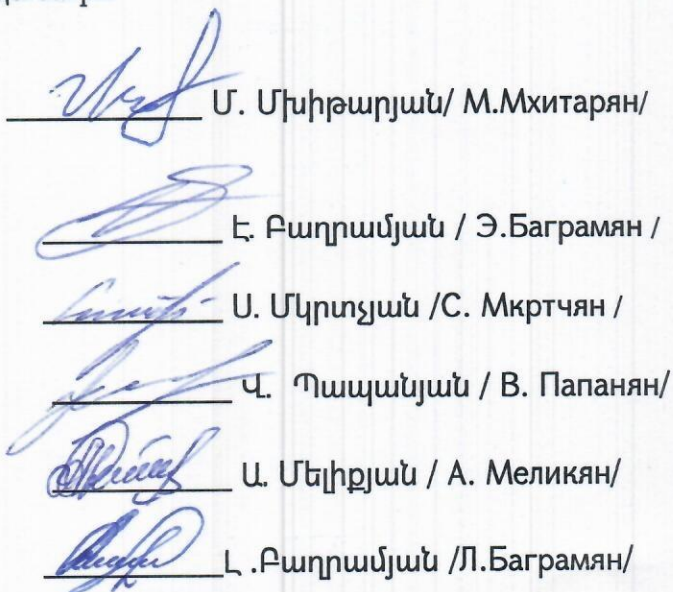 Մ. Մխիթարյան/ М.Мхитарян/
Է. Բաղրամյան / Э.Баграмян /
Ս. Մկրտչյան /С. Мкртчян /
Վ. Պապանյան / В. Папанян/
Ա. Մելիքյան / А. Меликян/
Լ .Բաղրամյան /Л.Баграмян/